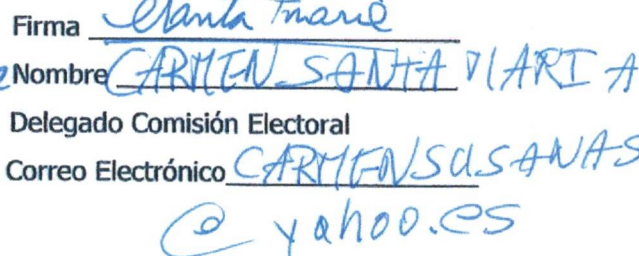 Firma Santa Maria
Nombre CARMEN SANTA MARIA
Delegado Comisión Electoral
Correo Electrónico CARMENSUSANAS
@ yahoo.es